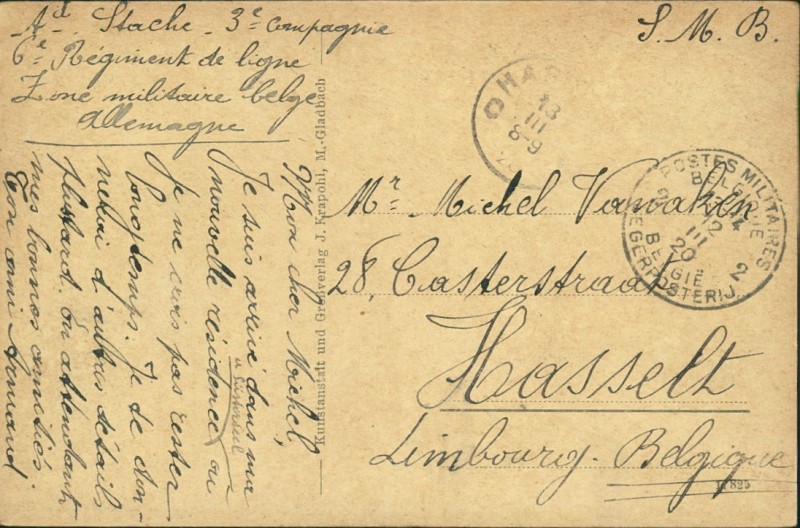 Ad. Stache - 3e compagnie
6e Régiment de ligne
Zone militaire belge
Allemagne
S. M. B.
Mon cher Michel,
Je suis arrivé dans ma
nouvelle résidence ou
à Dünnwald
je ne crois pas rester
longtemps. Je te don-
nerai d'autres détails
plustard. En attendant
mes bonnes amitiés.
Ton ami Armand
Kunstanstalt und Großverlag J. Krapohl, M.-Gladbach
HAS
13
III
8-9
POSTES MILITAIRES
BELGIQUE
12
III
20
BELGIE
2
LEGERPOSTERIJ
Mr Michel Vanvaken
28, Casterstraat
Hasselt
Limbourg. Belgique
11825